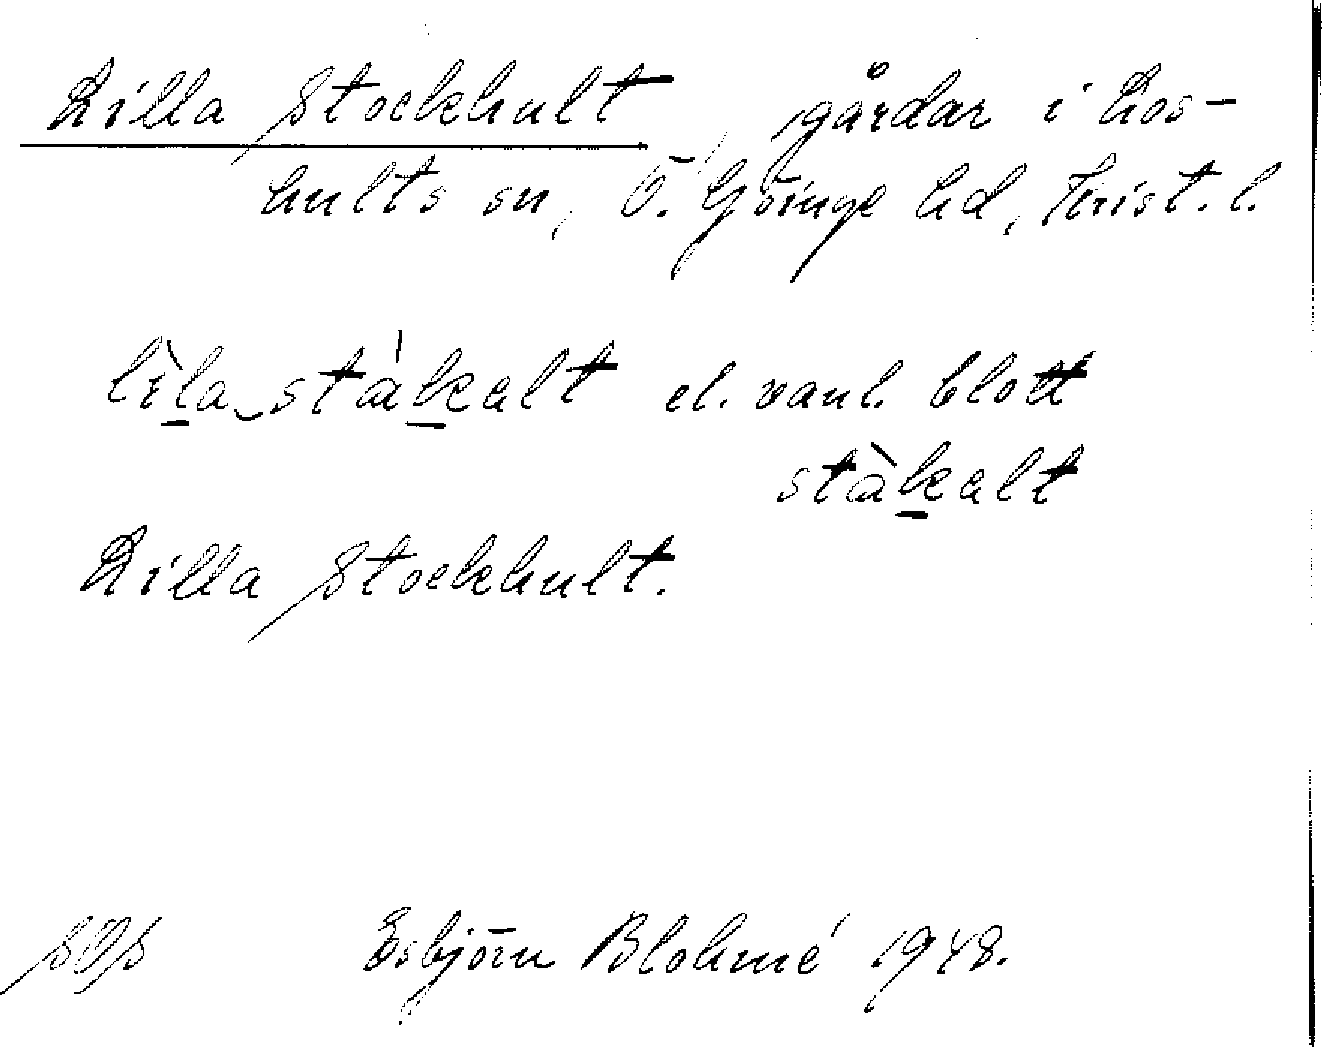 Lilla Stockhult, gårdar i Los-
hults sn, Ö. Göinge hd, Krist. l.
lìl̲a‿stàk̲alt el. vanl. blott
stàk̲alt
Lilla Stockhult.
SOS Esbjörn Blohmé 1948.